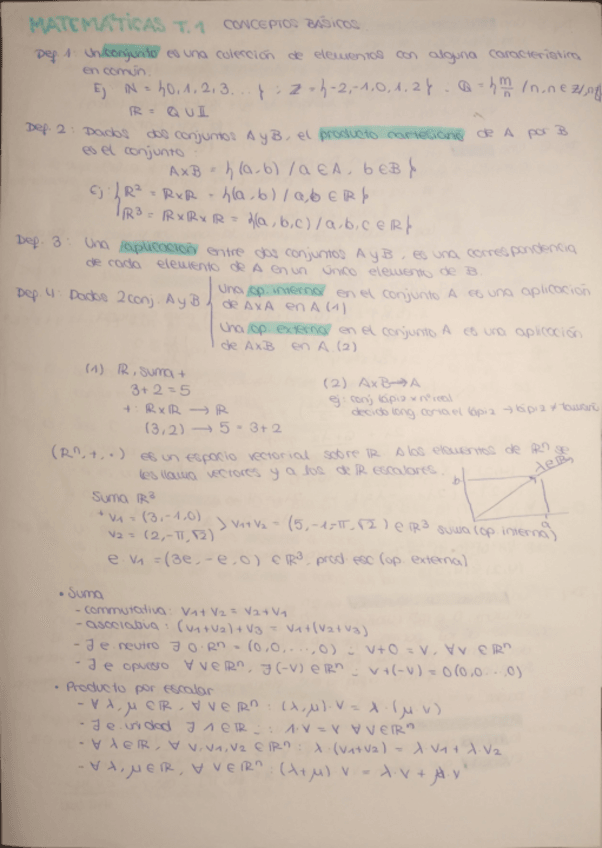 MATEMÁTICAS T.1 CONCEPTOS BÁSICOS
Def 1. Un conjunto es una colección de elementos con alguna característica
en común.
Ej N = {0, 1, 2, 3... } : Z = {-2, -1, 0, 1, 2} . Q = {m/n /
R = Q ∪ I
Def. 2: Dados dos conjuntos A y B, el producto cartesiano de A por B
es el conjunto:
A×B = {(a,b) / a ∈ A, b ∈ B}
R² = R×R = {(a,b) / a,b ∈ R}
R³ = R×R×R = {(a,b,c) / a,b,c ∈ R}
Def. 3: Una aplicación entre dos conjuntos A y B, es una correspondencia
de cada elemento de A en un único elemento de B.
Def 4: Dados 2 conj. A y B
Una op. interna en el conjunto A es una aplicación
de A×A en A (1)
Una op. externa en el conjunto A es una aplicación
de A×B en A (2)
(1) R, suma +
3+2 = 5
+: R×R → R
(3,2) → 5 = 3+2
(2) A×B → A
ej: conj lápiz × nº real
(Rⁿ, +, ·) es un espacio vectorial sobre R. A los elementos de Rⁿ se
les llama vectores y a los de R escalares.
b
a
Suma R³
+ v1 = (3, -1, 0)
v2 = (2, -π, √2)
v1+v2 = (5, -1-π, √2) ∈ R³ suma (op. interna)
e v1 = (3e, -e, 0) ∈ R³, prod esc (op. externa)
• Suma
- conmutativa: v1+v2 = v2+v1
- asociativa: (v1+v2)+v3 = v1+(v2+v3)
- ∃ e. neutro ∃ 0 · Rⁿ = (0,0,...,0) : v+0 = v, ∀v ∈ Rⁿ
- ∃ e opuesto ∀ v ∈ Rⁿ, ∃(-v) ∈ Rⁿ : v+(-v) = 0(0,0...,0)
• Producto por escalar
- ∀ λ, μ ∈ R, ∀ v ∈ Rⁿ : (λ, μ) · v = λ · (μ v)
- ∃ e. unidad ∃ 1 ∈ R : 1·v = v ∀ v ∈ Rⁿ
- ∀ λ ∈ R, ∀ v, v1, v2 ∈ Rⁿ : λ · (v1+v2) = λ v1 + λ v2
- ∀ λ, μ ∈ R, ∀ v ∈ Rⁿ : (λ+μ) v = λ·v + μ v